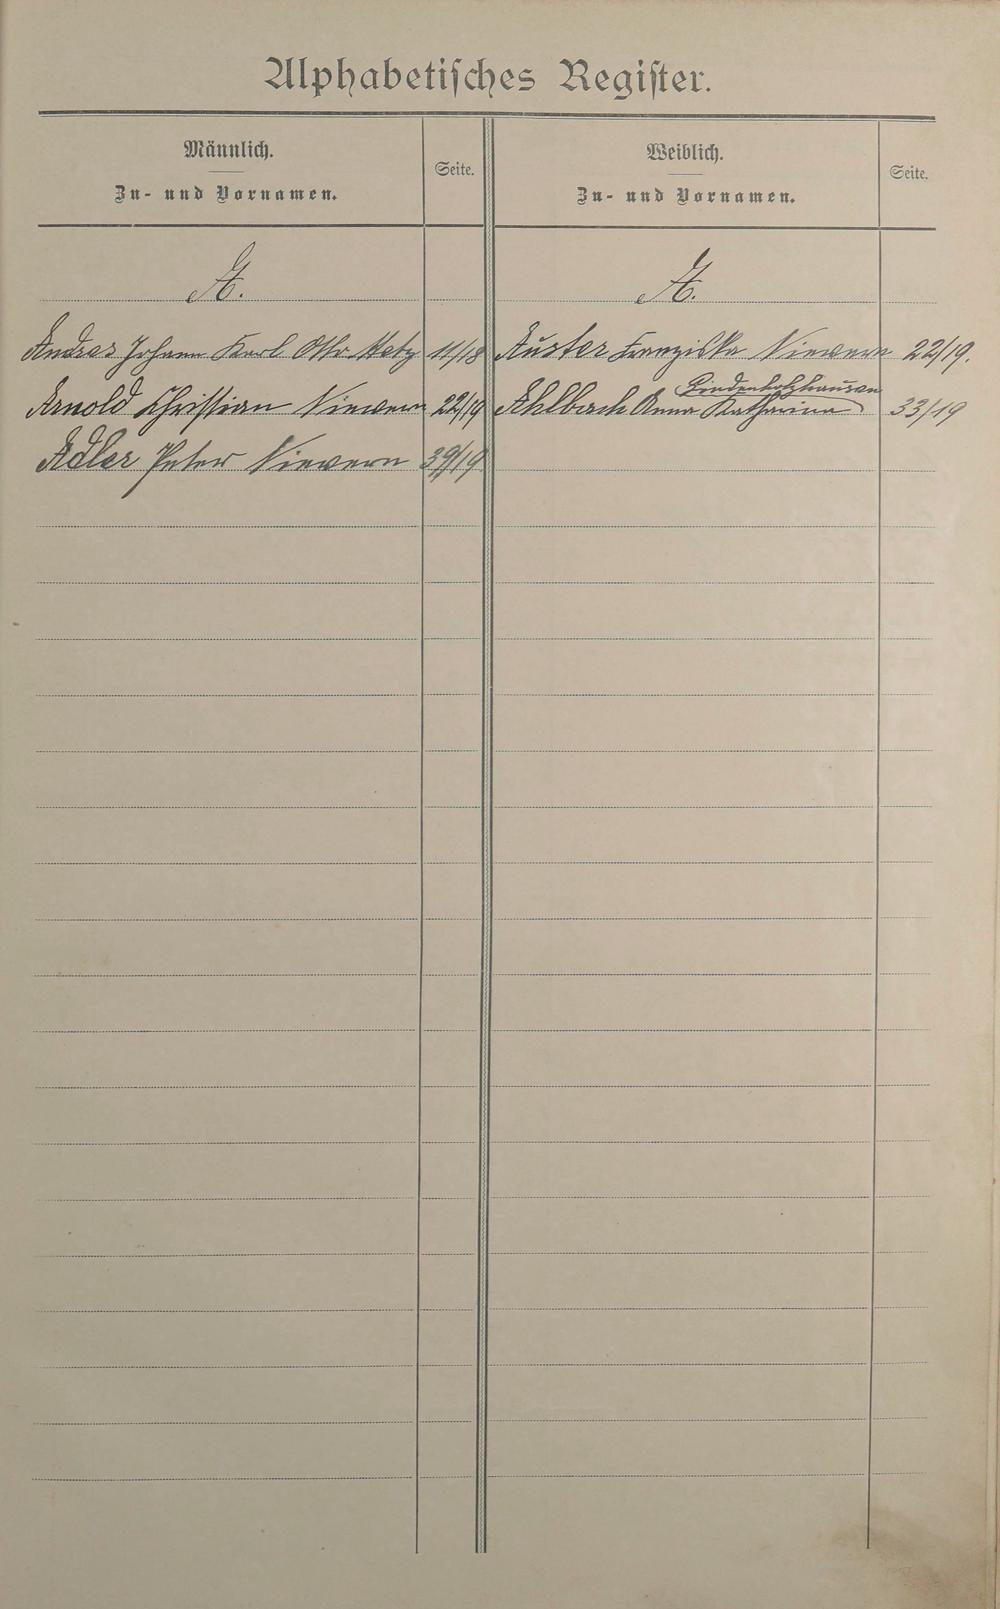 Alphabetisches Register.
Männlich.
Zu- und Vornamen.
Seite.
Weiblich.
Zu- und Vornamen.
Seite.
A.
A.
Andres Johann Karl Otto Metz 11/18
Auster Franziska Nievern 22/19.
Arnold Christian Nievern 22/19
Lindenholzhausen
Ahlbach Anna Katharina 33/19
Adler Peter Nievern 39/19